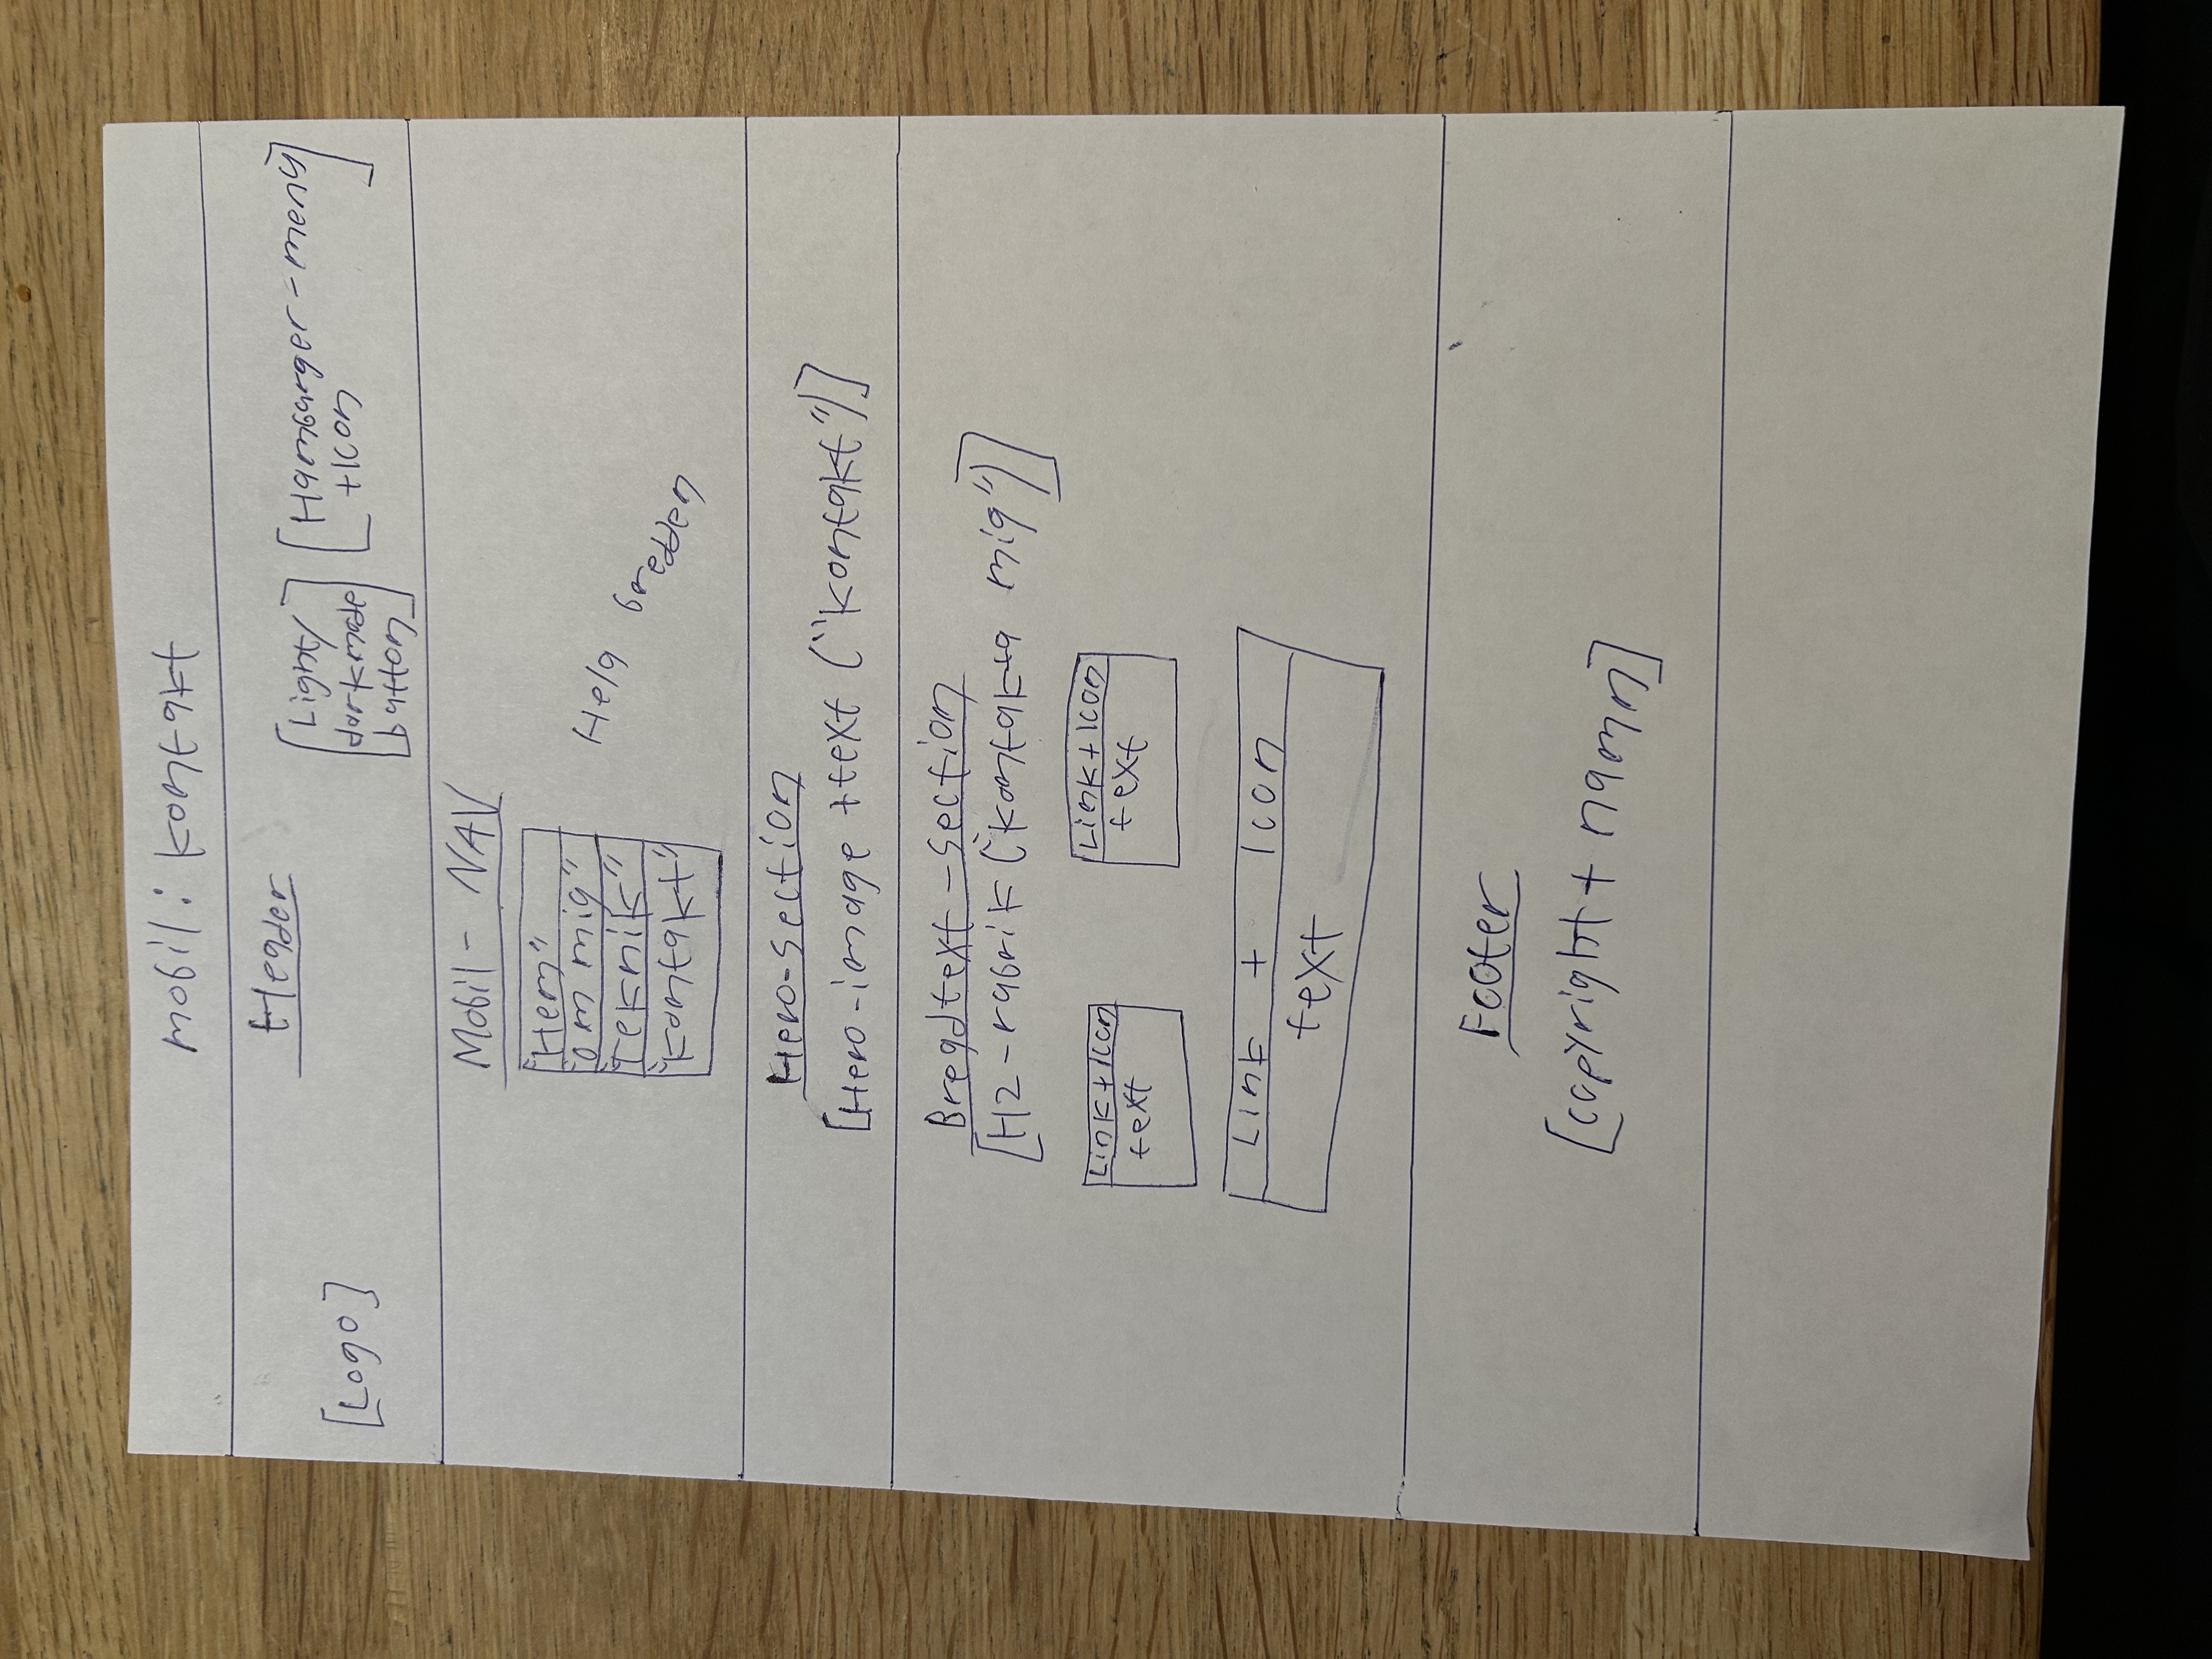 mobil: kontakt
Header
[Logo]
[Light/
darkmode
button]
[Hamburger-meny
+Icon]
Mobil- NAV
"Hem"
"om mig"
"Teknik"
"kontakt"
Hela bredden
Hero-section
[Hero-image +text ("kontakt")]
Breadtext-section
[H2-rubrik ("kontakta mig")]
Link+Icon
text
Link+Icon
text
Link + Icon
text
Footer
[copyright + namn]